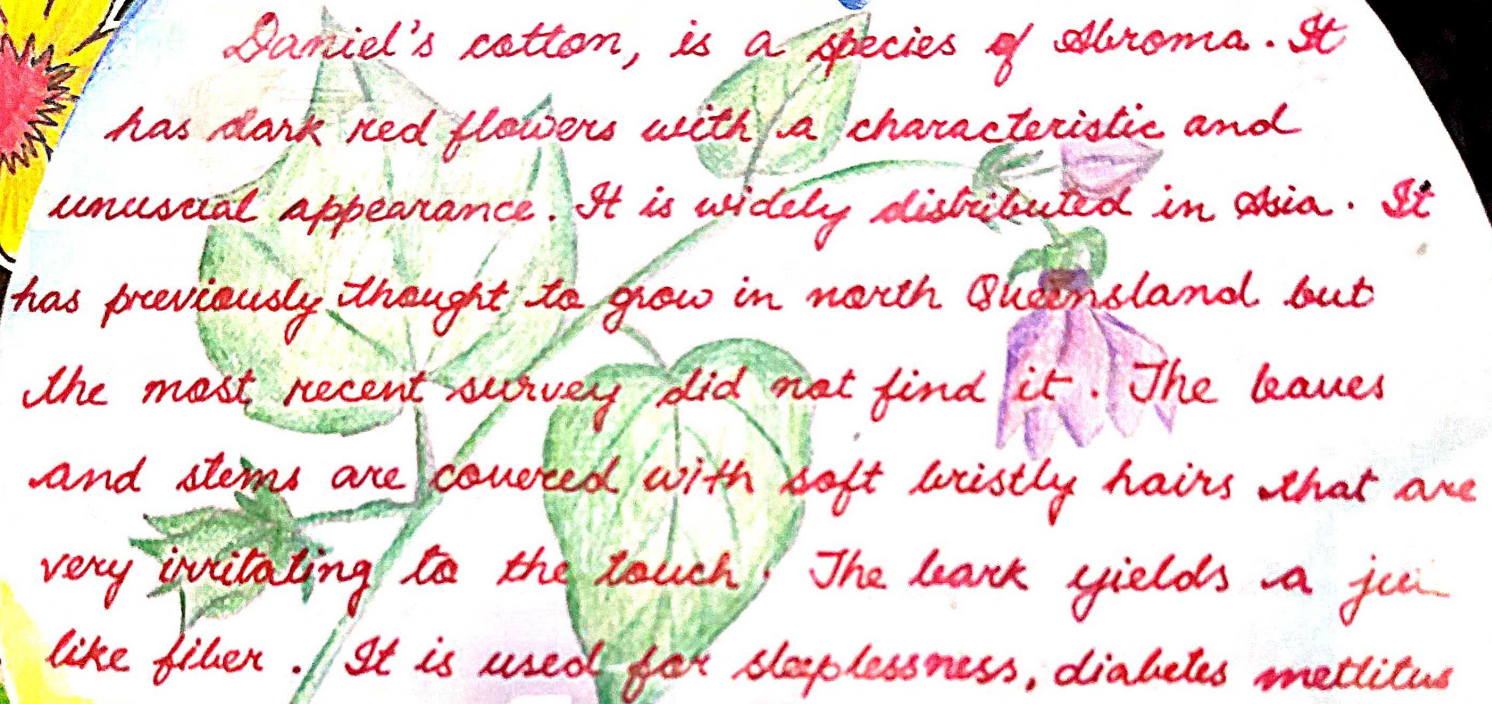 Daniel's cotton, is a species of Abroma. It
has dark red flowers with a characteristic and
unusual appearance. It is widely distributed in Asia. It
has previously thought to grow in north Queensland but
the most recent survey did not find it. The leaves
and stems are covered with soft bristly hairs that are
very irritating to the touch. The bark yields a
like fiber. It is used for sleeplessness, diabetes metlitus